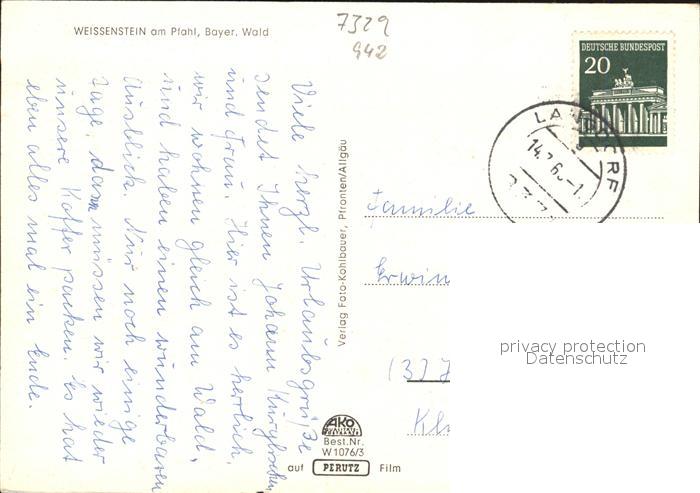 WEISSENSTEIN am Pfahl, Bayer. Wald
7329
942
DEUTSCHE BUNDESPOST
20
Viele herzl. Urlaubsgrüße
sendet Ihnen Johann
und Frau. Hier ist es herrlich,
wir wohnen gleich am Wald,
und haben einen wunderbaren
Ausblick. Nur noch einige
Tage, dann müssen wir wieder
unsere Koffer packen. Es hat
eben alles mal ein Ende.
Verlag Foto-Kohlbauer, Pfronten/Allgäu
Familie
Erwin
privacy protection
Datenschutz
AKO
Best.Nr.
W 1076/3
auf PERUTZ Film